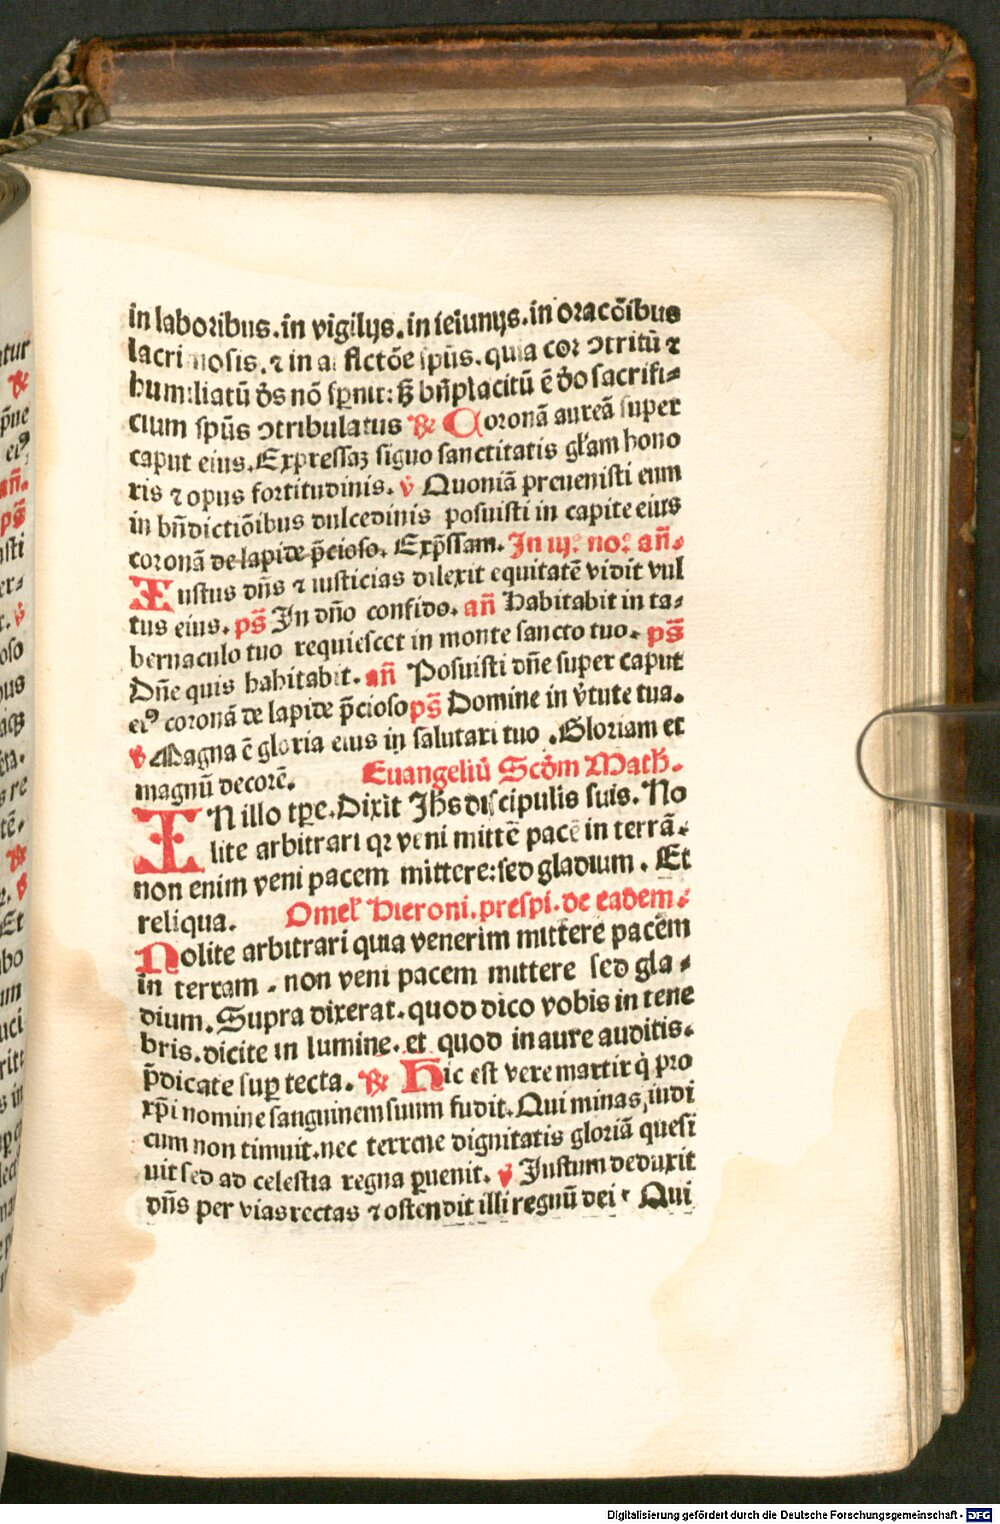 in laboribus. in vigilijs. in ieiunijs. in oracõibus
lacrimosis. ⁊ in afflictõe spūs. quia cor ↄtritū ⁊
humiliatū d̄s nō sp̄nit: ß bn̄placitū ē d̄o sacrifi⸗
cium spūs ↄtribulatus ℞ Coronā aureā super
caput eius. Expressaꝫ signo sanctitatis gl̄am hono
ris ⁊ opus fortitudinis. ℣ Quoniā preuenisti eum
in bn̄dictiõibus dulcedinis posuisti in capite eius
coronā de lapide p̄cioso. Exp̄ssam. In iij. no. an̄.
Iustus dn̄s ⁊ iusticias dilexit equitatē vidit vul
tus eius. ps̄ In dn̄o confido. an̄ Habitabit in ta⸗
bernaculo tuo requiescet in monte sancto tuo. ps̄
Dn̄e quis habitabit. an̄ Posuisti dn̄e super caput
eiꝰ coronā de lapide p̄cioso ps̄ Domine in v̄tute tua.
℣ Magna ē gloria eius in salutari tuo . Gloriam et
magnū decorē. Euangeliū Scd̄m Math̄.
IN illo tp̄e. Dixit Jh̄s discipulis suis. No
lite arbitrari qꝛ veni mittē pacē in terrā.
non enim veni pacem mittere: sed gladium . Et
reliqua. Omel̄ Hieroni. presp̄i. de eadem.
Nolite arbitrari quia venerim mittere pacem
in terram . non veni pacem mittere sed gla⸗
dium. Supra dixerat. quod dico vobis in tene
bris. dicite in lumine. et quod in aure auditis.
p̄dicate suꝑ tecta. ℞ Hic est vere martir q̇ pro
xp̄i nomine sanguinem suum fudit. Qui minas iudi
cum non timuit. nec terrene dignitatis gloriā quesi
uit sed ad celestia regna ꝑuenit. ℣ Justum deduxit
dn̄s per vias rectas ⁊ ostendit illi regnū dei. Qui
Digitalisierung gefördert durch die Deutsche Forschungsgemeinschaft - DFG